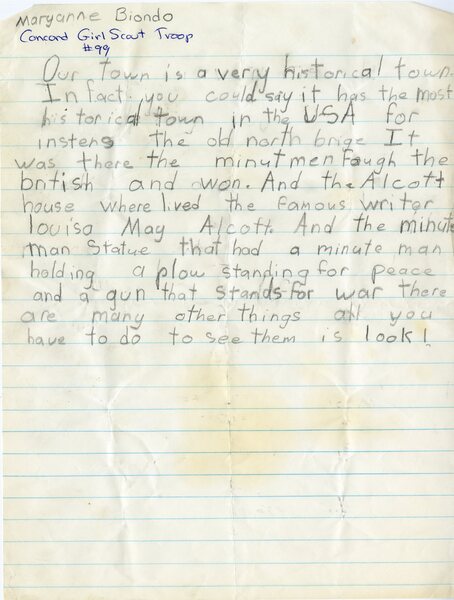 Maryanne Biondo
Concord Girl Scout Troop
#99
Our town is a very historical town.
In fact you could say it has the most
historical town in the USA for
instens the old north brige It
was there the minutmen faugh the
british and won. And the Alcott
house where lived the famous writer
louisa May Alcott. And the minute
man Statue that had a minute man
holding a plow standing for peace
and a gun that stands for war there
are many other things all you
have to do to see them is look!